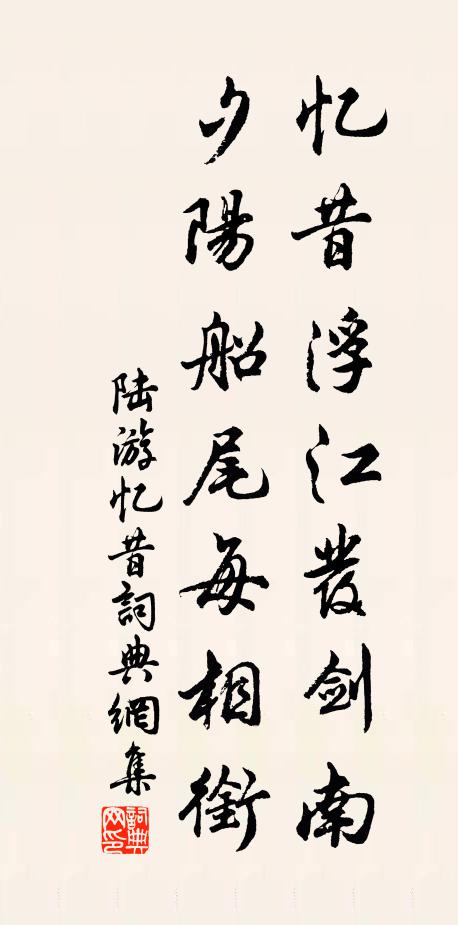 忆昔浮江發剑南
夕陽船尾每相銜
陆游忆昔詞典網集
詞典网印